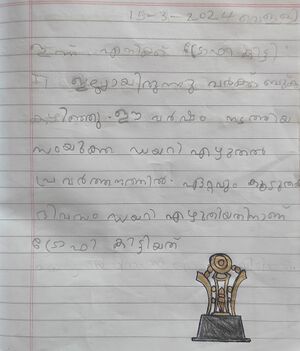 15-3-2024 വെള്ളി
ഇന്ന് എനിക്ക് ട്രോഫി കിട്ടി
ഇല്ലായിരുന്നു വർക്ക് ബുക്
കഴിഞ്ഞു. ഈ വർഷം നടത്തിയ
സംയുക്ത ഡയറി എഴുതൽ
പ്രവർത്തനത്തിൽ ഏറ്റവും കൂടുതൽ
ദിവസം ഡയറി എഴുതിയതിനാണ്
ട്രോഫി കിട്ടിയത്